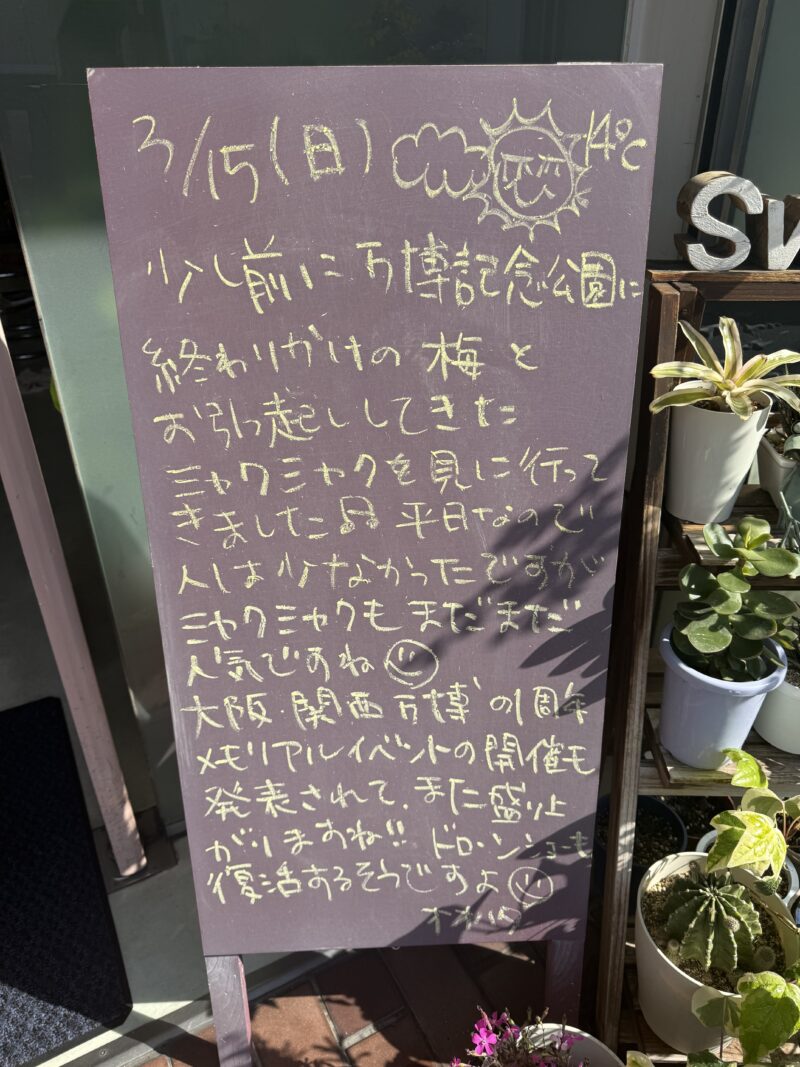 3/15(日) 14℃
少し前に万博記念公園に
終わりかけの梅と
お引っ越ししてきた
ミャクミャクを見に行って
きました♫ 平日なので
人は少なかったですが
ミャクミャクもまだまだ
人気ですね
大阪・関西万博の1周年
メモリアルイベントの開催も
発表されて、また盛り上
がりますね!! ドローンショーも
復活するそうですよ
SW